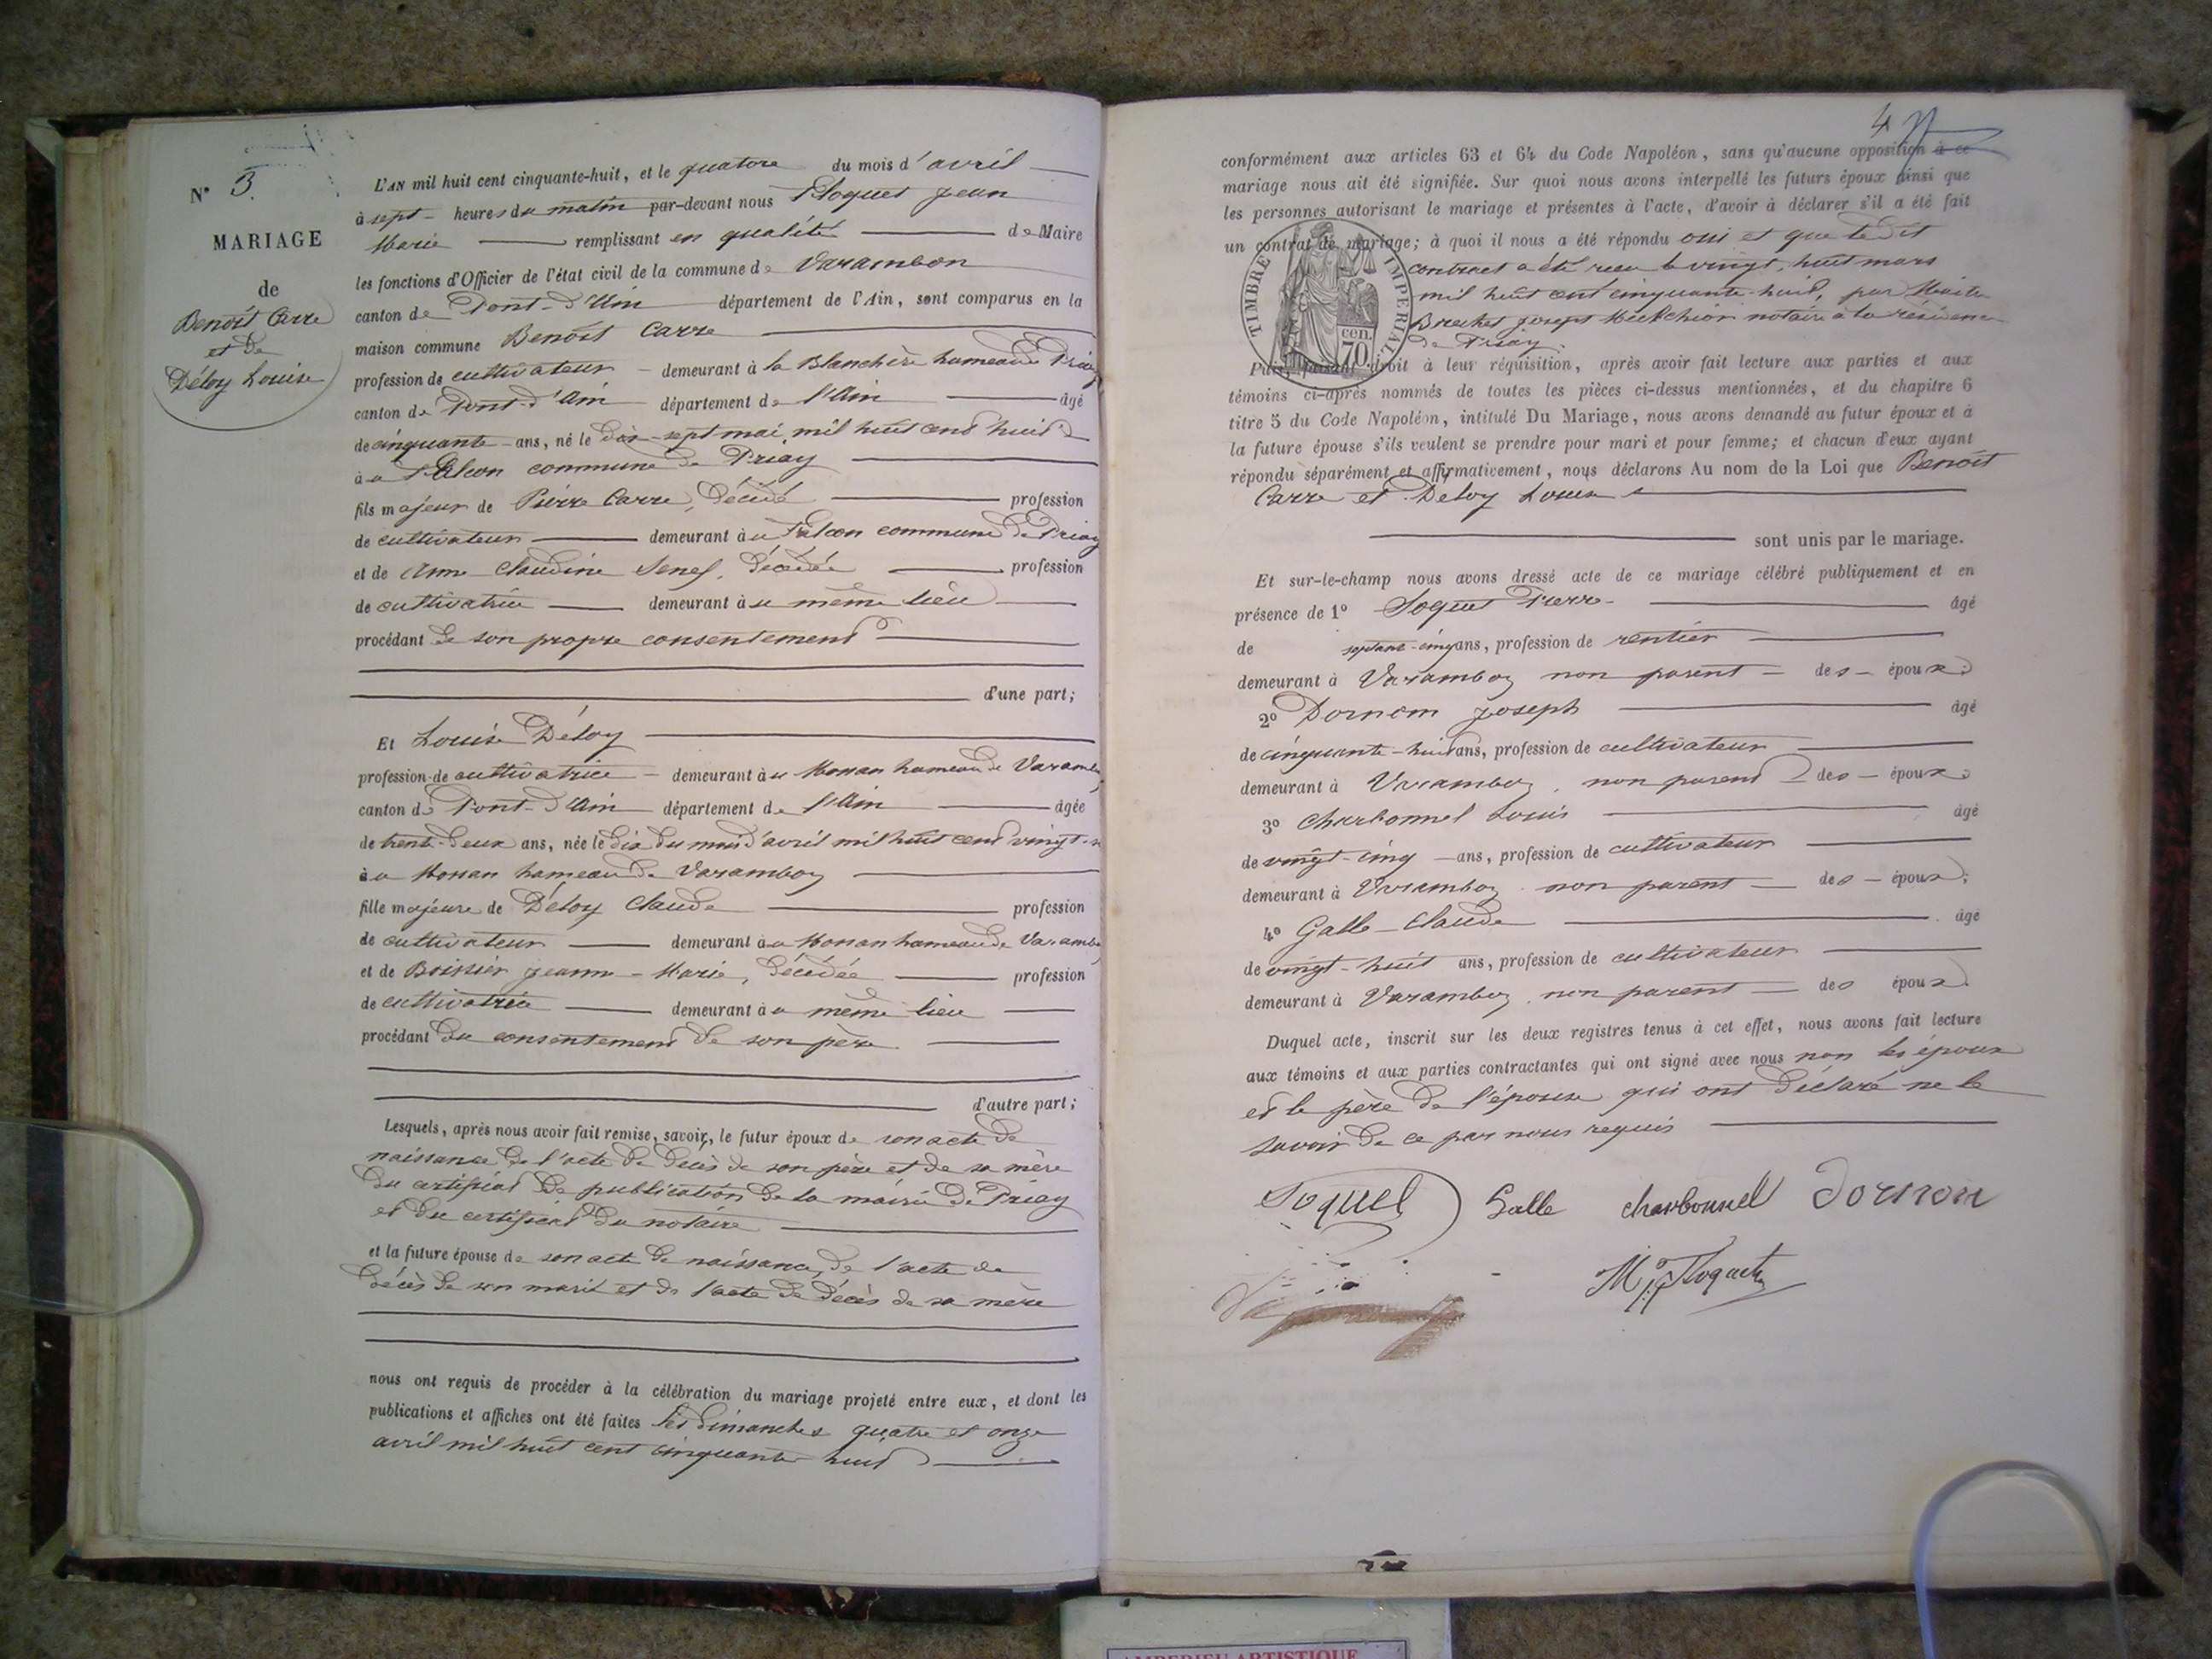 N° 3.
MARIAGE
de
Benoît Carre
et de
Déloy Louise
L'AN mil huit cent cinquante-huit, et le quatorze du mois d'avril
à sept heures du matin par-devant nous Floquet Jean
Marie remplissant en qualité de Maire
les fonctions d'Officier de l'état civil de la commune de Varambon
canton de Pont-d'Ain département de l'Ain, sont comparus en la
maison commune Benoît Carre
profession de cultivateur demeurant à la Blanchère hameau de Priay
canton de Pont-d'Ain département de l'Ain âgé
de cinquante ans, né le dix-sept mai mil huit cent huit
à commune de Priay
fils majeur de Pierre Carre, décédé profession
de cultivateur demeurant commune de Priay
et de Anne Claudine décédée profession
de cultivatrice demeurant au même lieu
procédant de son propre consentement
d'une part;
Et Louise Déloy
profession de cultivatrice demeurant au hameau de Varambon
canton de Pont-d'Ain département de l'Ain âgée
de trente-deux ans, née le dix du mois d'avril mil huit cent vingt-
au hameau de Varamboy
fille majeure de Déloy Claude profession
de cultivateur demeurant au hameau de Varambo
et de Boissier Jeanne-Marie, décédée profession
de cultivatrice demeurant au même lieu
procédant du consentement de son père
d'autre part;
Lesquels, après nous avoir fait remise, savoir, le futur époux de son acte de
naissance de l'acte de décès de son père et de sa mère
du certificat de publication de la mairie de Priay
et du certificat du notaire
et la future épouse de son acte de naissance, de l'acte de
décès de son marit et de l'acte de décès de sa mère
nous ont requis de procéder à la célébration du mariage projeté entre eux, et dont les
publications et affiches ont été faites les dimanches quatre et onze
avril mil huit cent cinquante huit
4
conformément aux articles 63 et 64 du Code Napoléon, sans qu'aucune opposition à ce
mariage nous ait été signifiée. Sur quoi nous avons interpellé les futurs époux ainsi que
les personnes autorisant le mariage et présentes à l'acte, d'avoir à déclarer s'il a été fait
un contrat de mariage; à quoi il nous a été répondu oui et que le dit
contract a été recu le vingt, huit mars
mil huit cent cinquante-huit, par Maitre
Brechet joseph Melchior notaire à la résidence
de Priay.
TIMBRE IMPERIAL
cen.
70.
Puis, faisant droit à leur réquisition, après avoir fait lecture aux parties et aux
témoins ci-après nommés de toutes les pièces ci-dessus mentionnées, et du chapitre 6
titre 5 du Code Napoléon, intitulé Du Mariage, nous avons demandé au futur époux et à
la future épouse s'ils veulent se prendre pour mari et pour femme; et chacun d'eux ayant
répondu séparément et affirmativement, nous déclarons Au nom de la Loi que Benoît
Carre et Déloy Louise
sont unis par le mariage.
Et sur-le-champ nous avons dressé acte de ce mariage célébré publiquement et en
présence de 1° Soquet Pierre âgé
de septante-cinq ans, profession de rentier
demeurant à Varamboy non parent des époux
2° Dornon joseph âgé
de cinquante-huit ans, profession de cultivateur
demeurant à Varamboy, non parent des époux
3° Charbonnel Louis âgé
de vingt-cinq ans, profession de cultivateur
demeurant à Varamboy non parent des époux;
4° Galle Claude âgé
de vingt-huit ans, profession de cultivateur
demeurant à Varamboy, non parent des époux
Duquel acte, inscrit sur les deux registres tenus à cet effet, nous avons fait lecture
aux témoins et aux parties contractantes qui ont signé avec nous non les époux
et le père de l'épouse qui ont déclaré ne le
savoir de ce par nous requis
Soquet Galle charbonnel Dornon
Floquet
AMBERIEU ARTISTIQUE